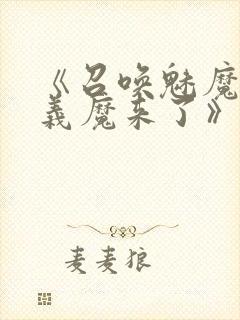 《召唤魅魔
義魔来了》
麦麦狼